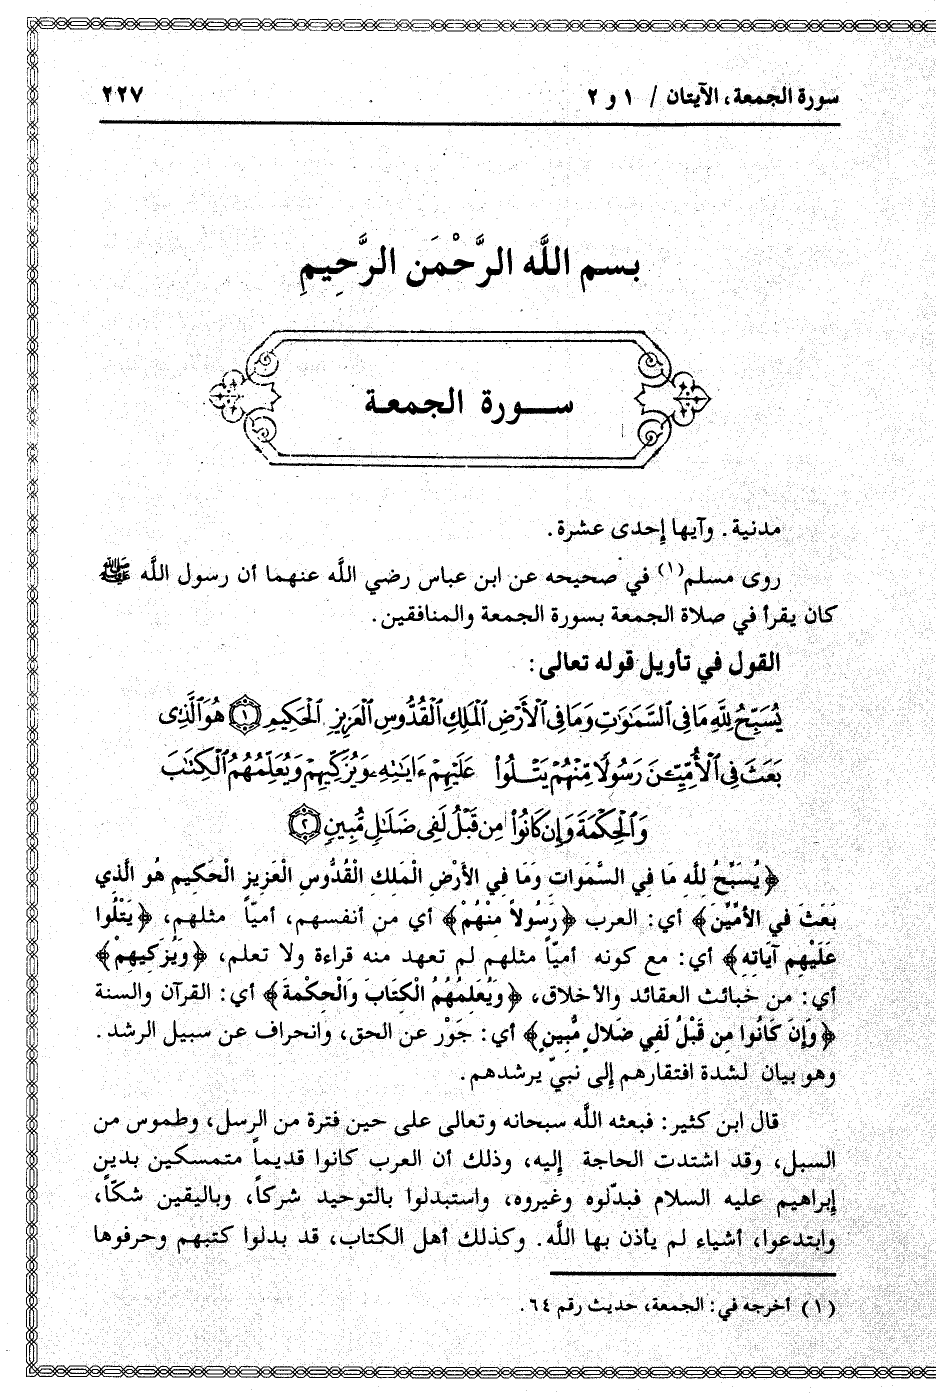 سورة الجمعة، الآيتان / ١ و ٢ ٢٢٧
بسم اللَّه الرَّحْمَن الرَّحِيمِ
ســورة الجمعـة
مدنية. وآيها إحدى عشرة.
روى مسلم(١) في صحيحه عن ابن عباس رضي اللَّه عنهما أن رسول اللَّه ﷺ
كان يقرأ في صلاة الجمعة بسورة الجمعة والمنافقين.
القول في تأويل قوله تعالى:
يُسَبِّحُ لِلَّهِ مَا فِى ٱلسَّمَٰوَٰتِ وَمَا فِى ٱلْأَرْضِ ٱلْمَلِكِ ٱلْقُدُّوسِ ٱلْعَزِيزِ ٱلْحَكِيمِ ۝١ هُوَ ٱلَّذِى
بَعَثَ فِى ٱلْأُمِّيِّـۧنَ رَسُولًا مِّنْهُمْ يَتْلُوا۟ عَلَيْهِمْ ءَايَٰتِهِۦ وَيُزَكِّيهِمْ وَيُعَلِّمُهُمُ ٱلْكِتَٰبَ
وَٱلْحِكْمَةَ وَإِن كَانُوا۟ مِن قَبْلُ لَفِى ضَلَٰلٍ مُّبِينٍ ۝٢
﴿يُسَبِّحُ للَّهِ مَا فِي السَّمَوات وَمَا فِي الأَرْضِ الْمَلِكِ الْقُدُّوسِ الْعَزِيزِ الْحَكِيم هُو الَّذِي
بَعَثَ فِي الأُمِّيِّنَ﴾ أي: العرب ﴿رَسُولاً مِنْهُمْ﴾ أي من أنفسهم، أميّاً مثلهم، ﴿يَتْلُوا
عَلَيْهِم آيَاتِهِ﴾ أي: مع كونه أميّاً مثلهم لم تعهد منه قراءة ولا تعلم، ﴿وَيُزَكِيهِمْ﴾
أي: من خبائث العقائد والأخلاق، ﴿وَيُعَلِمُهُمُ الْكِتَابَ وَالْحِكْمةَ﴾ أي: القرآن والسنة
﴿وَإِنَ كَانُوا مِن قَبْلُ لَفِي ضَلال مُّبِينٍ﴾ أي: جَوْر عن الحق، وانحراف عن سبيل الرشد.
وهو بيان لشدة افتقارهم إلى نبيّ يرشدهم.
قال ابن كثير: فبعثه اللَّه سبحانه وتعالى على حين فترة من الرسل، وطموس من
السبل، وقد اشتدت الحاجة إليه، وذلك أن العرب كانوا قديماً متمسكين بدين
إبراهيم عليه السلام فبدّلوه وغيروه، واستبدلوا بالتوحيد شركاً، وباليقين شكّاً،
وابتدعوا، أشياء لم يأذن بها اللَّه. وكذلك أهل الكتاب، قد بدلوا كتبهم وحرفوها
(١) أخرجه في: الجمعة، حديث رقم ٦٤.